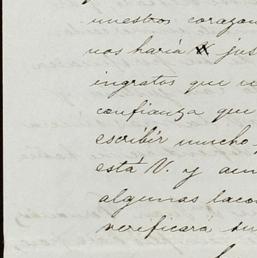 nuestros corazon
nos haria jus
ingratos que
confianza que
escribir mucho
está V. y aun
algunas laco
verificara su